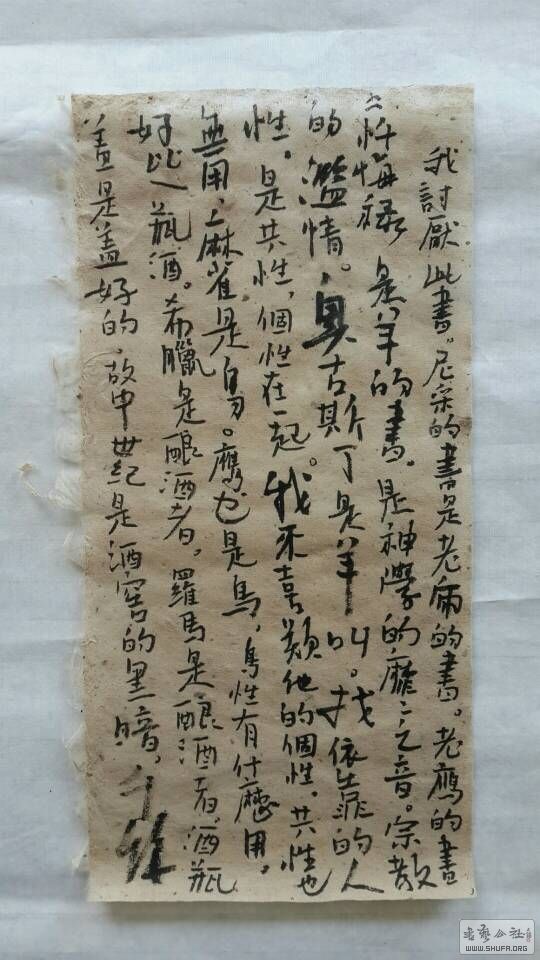 我討厭此書。尼采的書是老病的書。老鷹的書
忏悔禄是羊的書。是神學的靡〻之音。宗教
的濫情。奥古斯丁是羊叫。找依靠的人
性。是共性,個性在一起。我不喜歡他的個性。共性也
無用,麻雀是鳥。鷹也是鳥,鳥性有什麽用。
好比一瓶酒。希臘是釀酒者。羅馬是釀酒者。酒瓶
盖是盖好的,故中世紀是酒窖的黑暗。
书艺公社
WWW.SHUFA.ORG